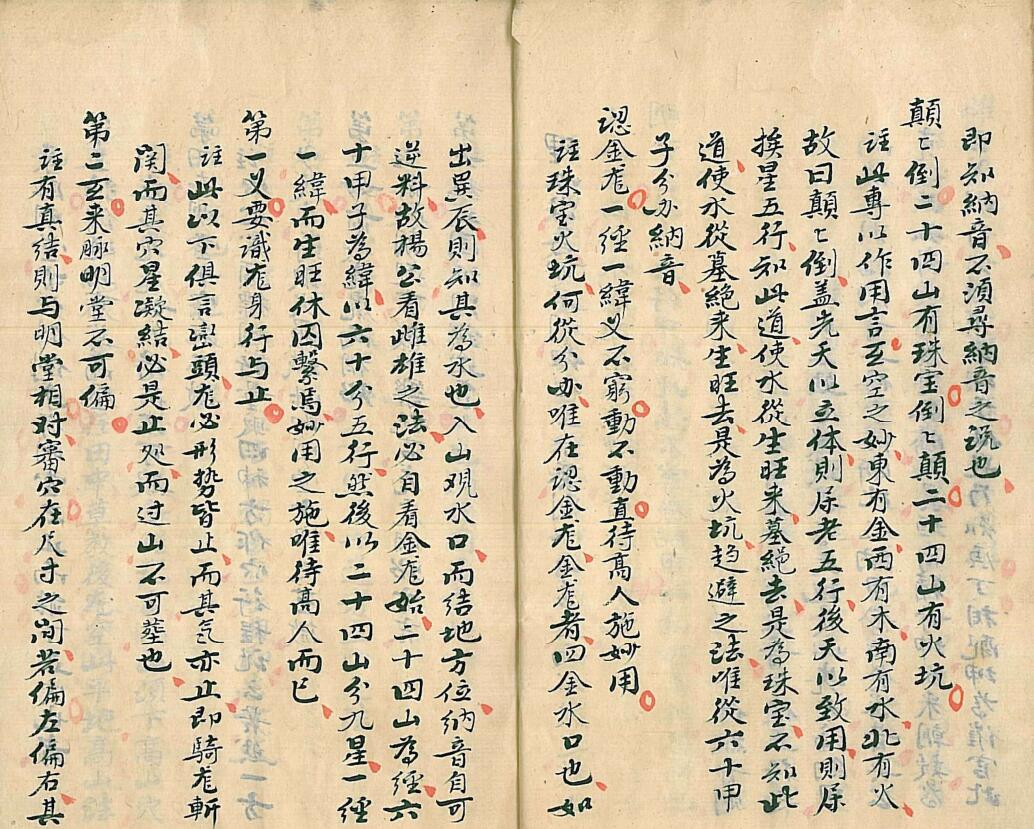 即知納音不須尋納音之説也
顛〻倒二十四山有珠宝倒〻顛二十四山有火坑
註此専以作用言玄空之妙東有金西有木南有水北有火
故曰顛〻倒盖先天以立体則属老五行後天以致用則属
挨星五行知此道使水從生旺来墓絕去是為珠宝不知此
道使水從墓絕来生旺去是為火坑趋避之法唯從六十甲
子分办納音
認金龙一經一緯义不窮動不動直待高人施妙用
註珠宝火坑何從分办唯在認金龙金龙者四金水口也如
出巽辰則知其為水也入山覌水口而结地方位納音自可
逆料故楊公看雌雄之法必自看金龙始二十四山為經六
十甲子為緯以六十分五行然後以二十四山分九星一經
一緯而生旺休囚繫焉妙用之施唯待高人而已
第一义要識龙身行与止
註此以下俱言巒頭龙必形势皆止而其気亦止即騎龙斬
関而其穴星凝結必是止处而过山不可塟也
第二玄来脉明堂不可偏
註有真结則与明堂相对審穴在尺寸之间若偏左偏右其